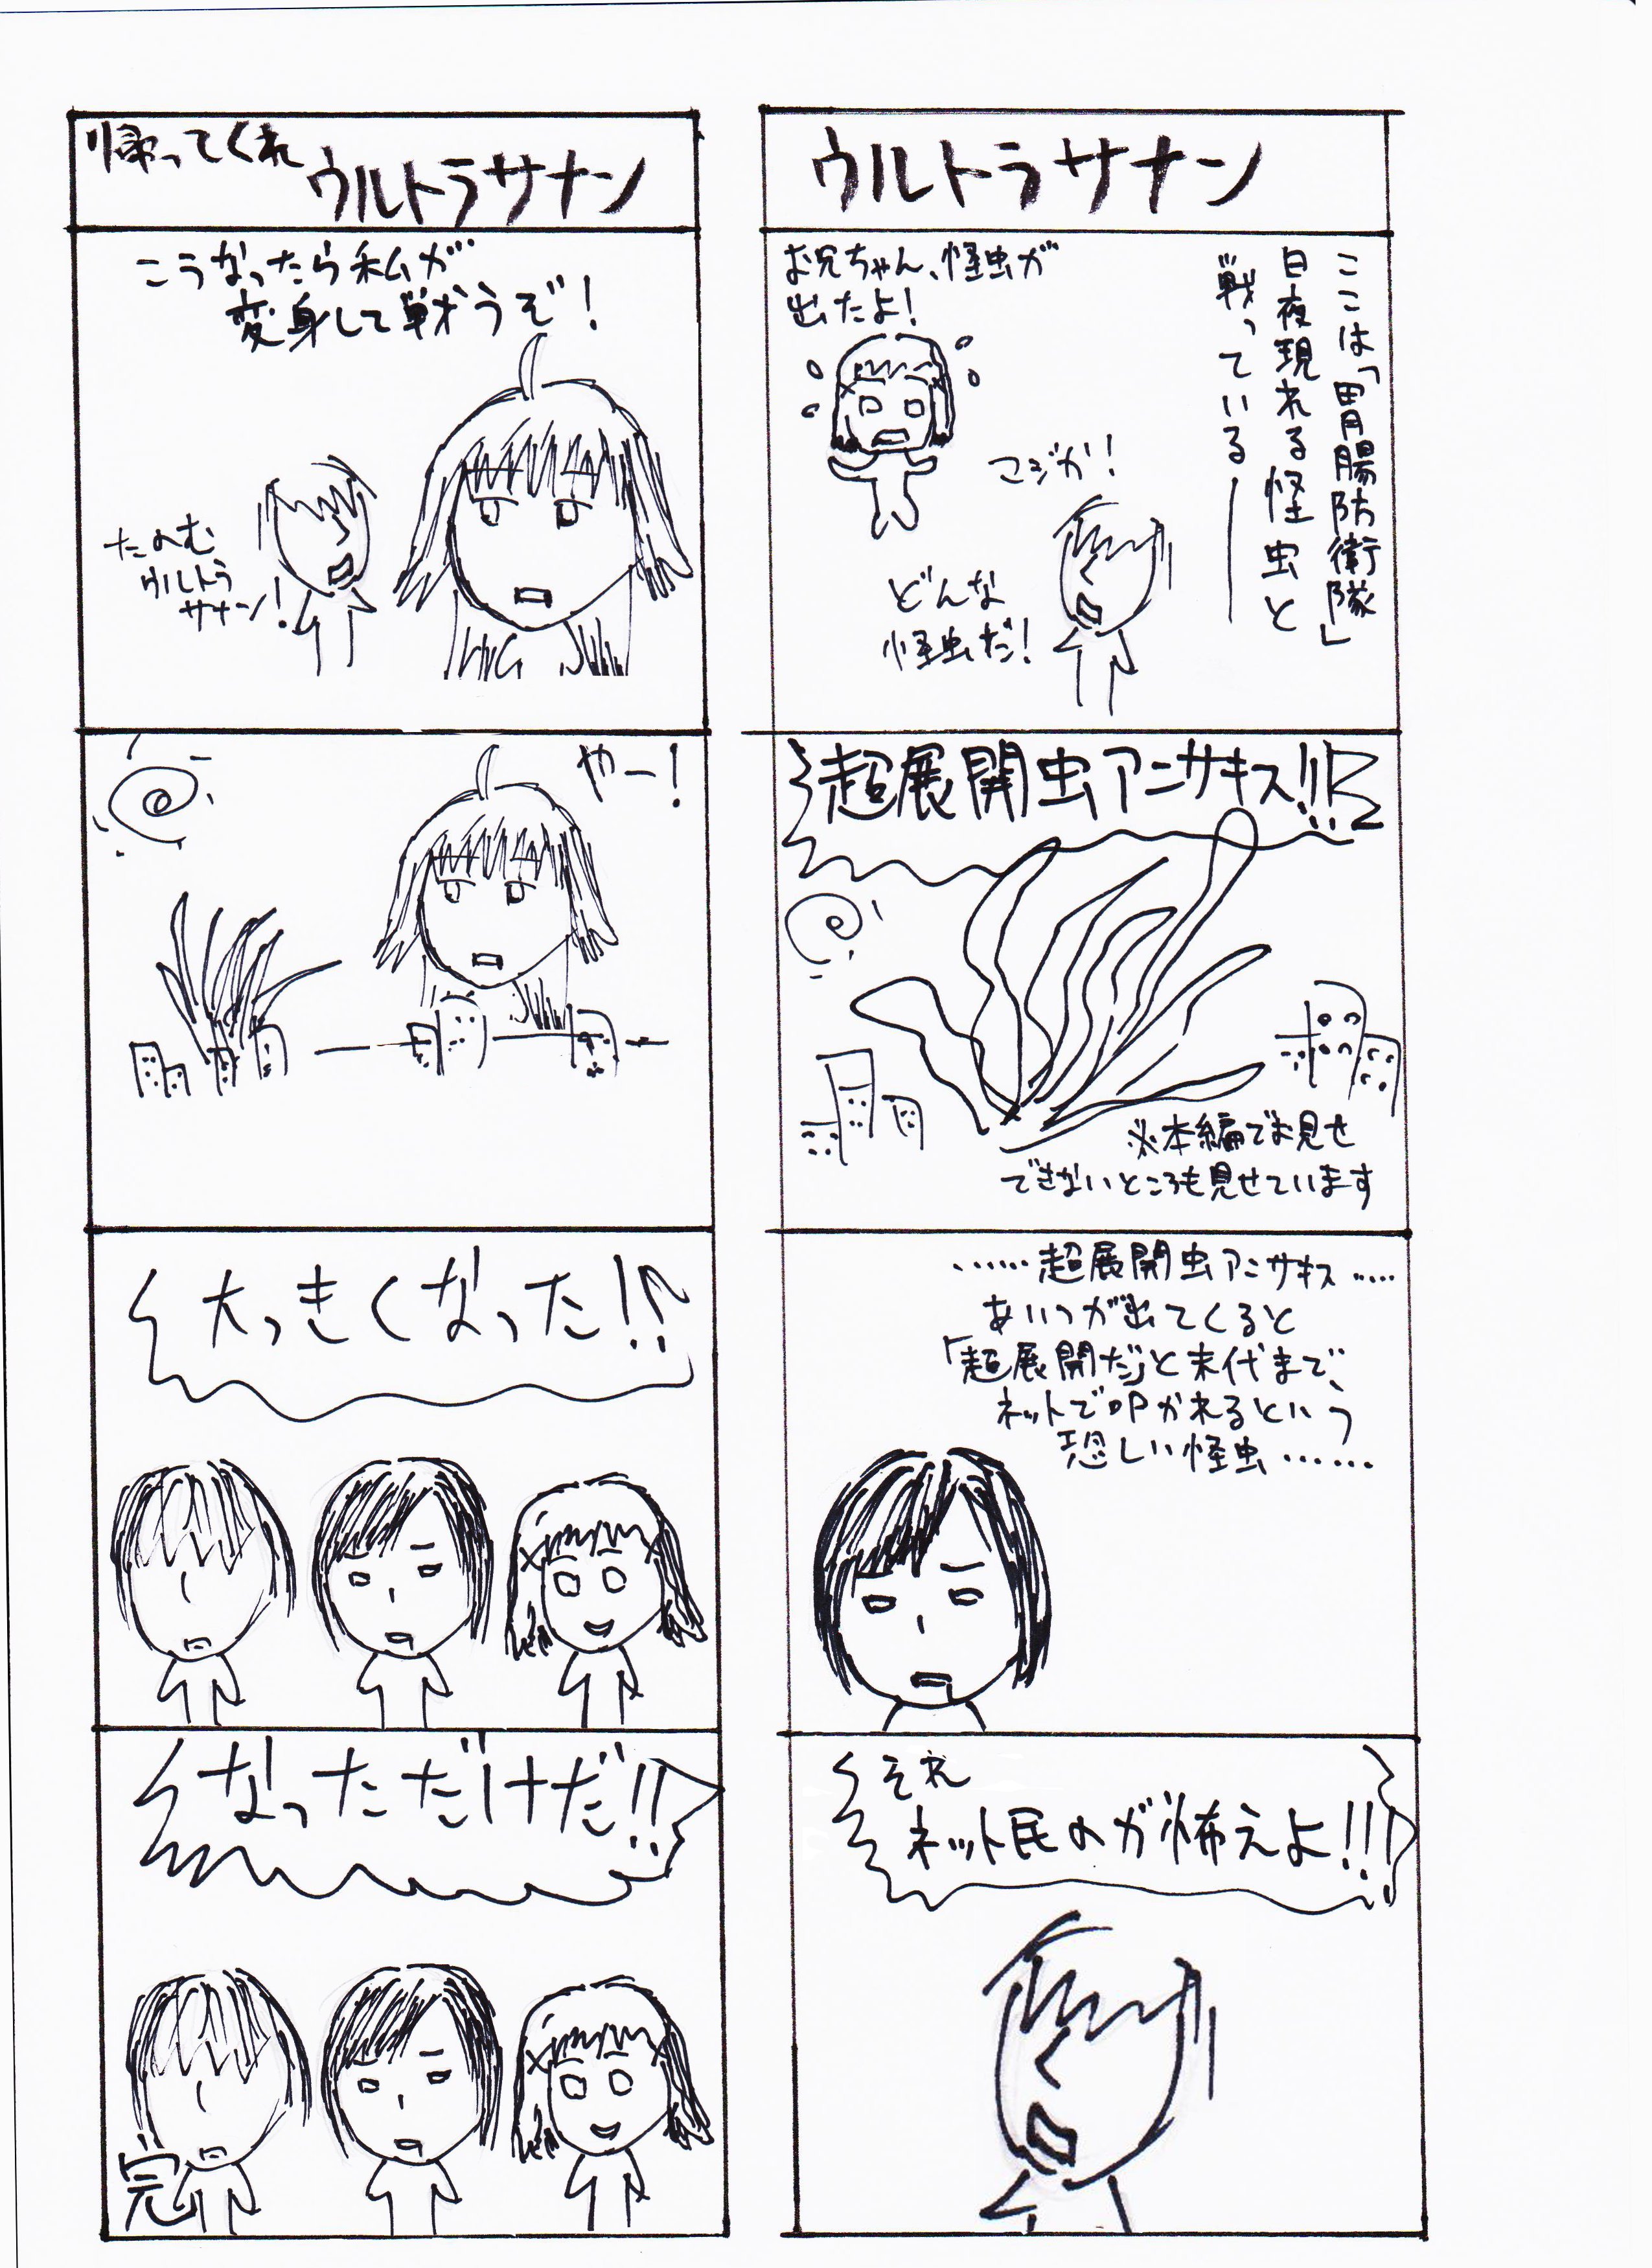 ウルトラサナン
ここは「胃腸防衛隊」
日夜現れる怪虫と
戦っている――
お兄ちゃん、怪虫が
出たよ!
マジか!
どんな
怪虫だ!
超展開虫アニサキス!!
※本編でお見せ
できないところも見せています
……超展開虫アニサキス……
あいつが出てくると
「超展開だ」と末代まで、
ネットで叩かれるという
恐しい怪虫……
それ
ネット民のが怖えよ!!!
帰ってくれ
ウルトラサナン
こうなったら私が
変身して戦うぞ!
たのむ
ウルトラ
サナン!
やー!
大っきくなった!?
なっただけだ!!
完